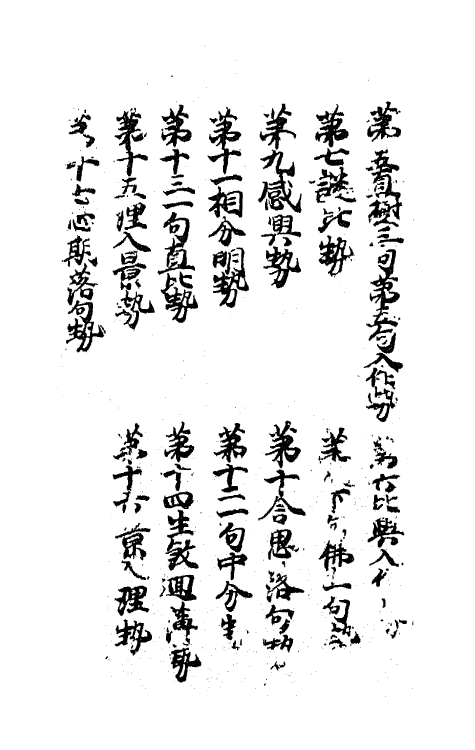 第五直樹三句第五句入作勢
第六比興入
第七謎比勢
第 下句 佛一句勢
第九感興勢
第十含思落句勢
第十一相分明勢
第十二一句中分
第十三一句直比勢
第十四生敘迴薄勢
第十五理入景勢
第十六景入理勢
第十七心期落句勢